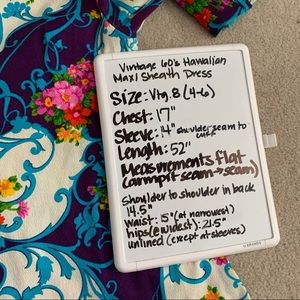 Vintage 60's Hawaiian
Maxi Sheath Dress
Size: Vtg. 8 (4-6)
Chest: 17"
Sleeve: 14" shoulder seam to cuff
Length: 52"
Measurements flat
(armpit seam → seam)
Shoulder to shoulder in back
14.5"
waist: 15" (at narrowest)
hips (@ widest): 21.5"
unlined (except at sleeves)
U BRANDS